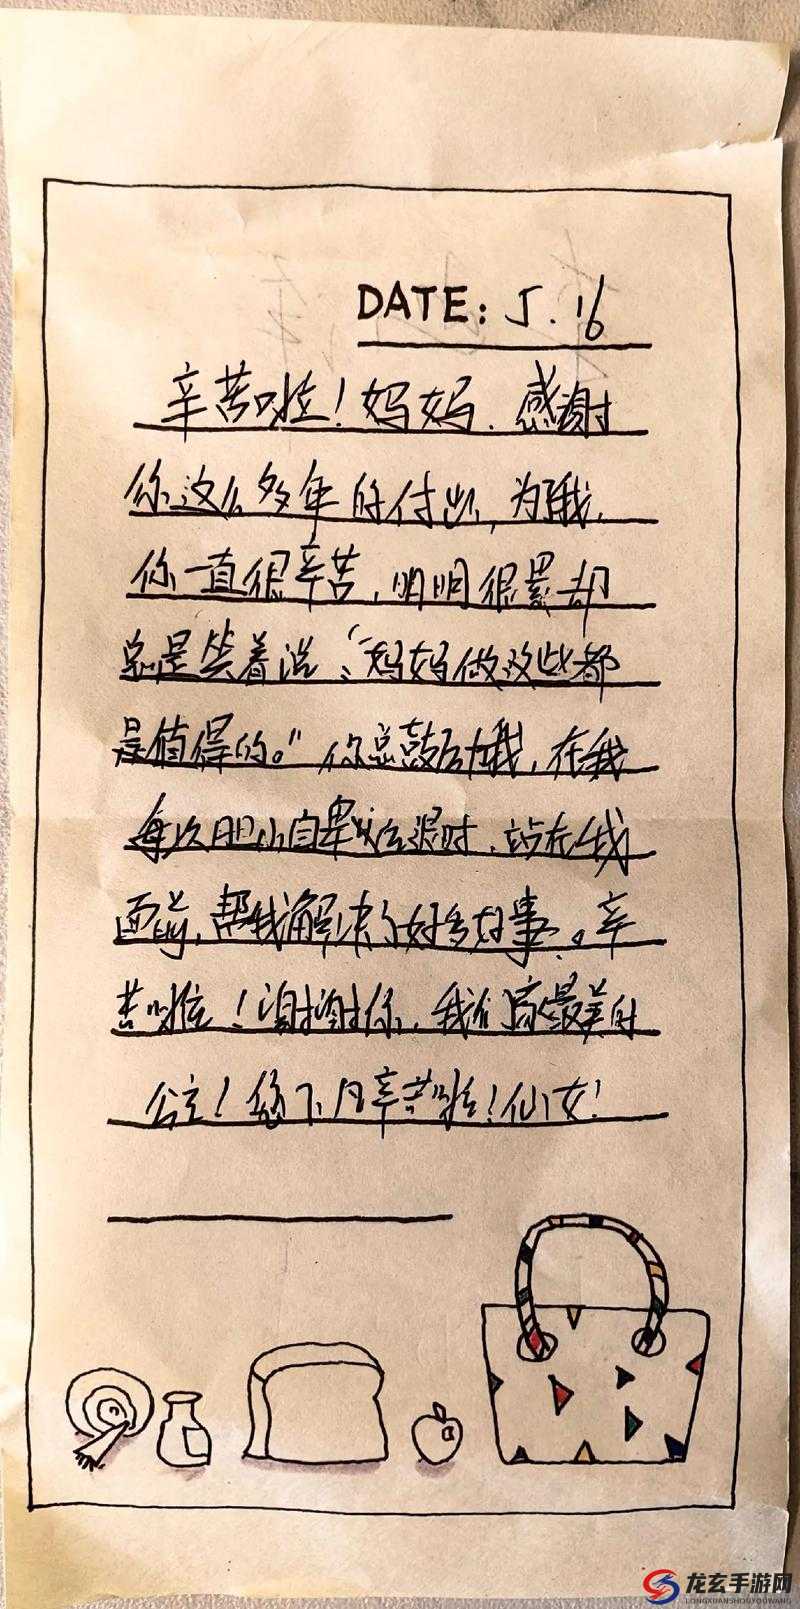 DATE: 5.16
辛苦啦！妈妈.感谢
你这么多年的付出,为了我,
你一直很辛苦,明明很累却
总是笑着说:“妈妈做这些都
是值得的。”你总鼓励我,在我
每次胆小自卑或后退时,站在我
面前,帮我解决了好多好事。辛
苦啦！谢谢你,我们家最美的
公主！您下凡辛苦啦！仙女！
龙玄手游网
LONGXUANSHOUYOUWANG